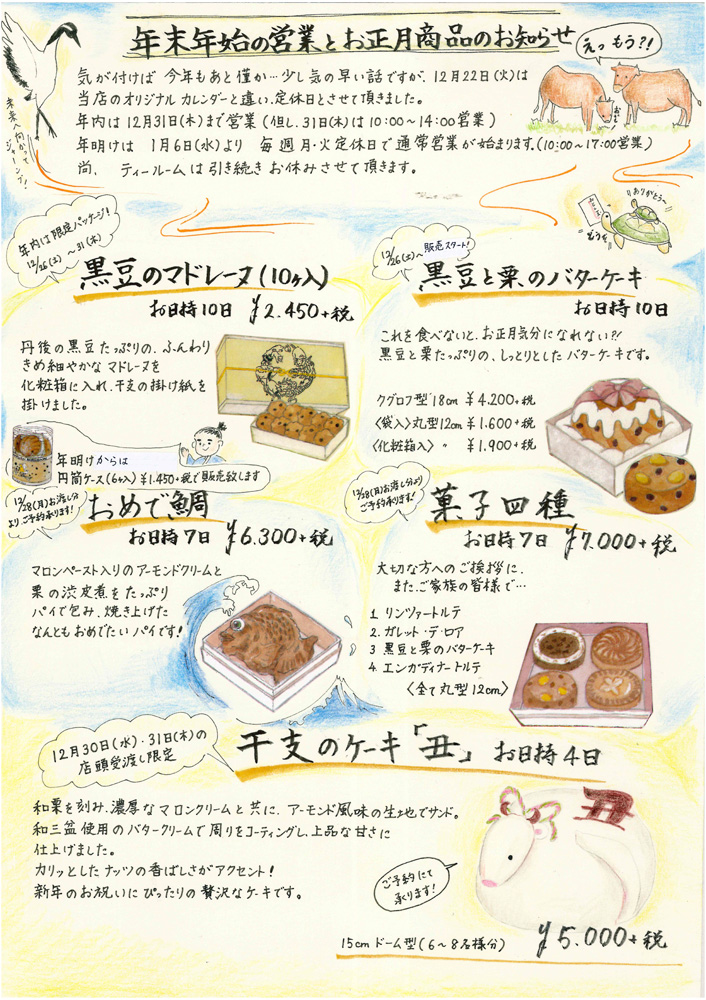 年末年始の営業とお正月商品のお知らせ
えっもう?!
未来へ向かって
ジャーンプ!
気が付けば 今年もあと僅か…少し気の早い話ですが、12月22日(火)は
当店のオリジナルカレンダーと違い、定休日とさせて頂きました。
年内は12月31日(木)まで営業(但し、31日(木)は10:00~14:00営業)
年明けは 1月6日(水)より 毎週月・火定休日で通常営業が始まります。(10:00~17:00営業)
尚、 ティールームは引き続きお休みさせて頂きます。
ありがとう~
年内は限定パッケージ!
12/26(土)~31(木)
黒豆のマドレーヌ(10ヶ入)
お日持10日 ¥2.450+税
丹後の黒豆たっぷりの、ふんわり
きめ細やかなマドレーヌを
化粧箱に入れ、干支の掛け紙を
掛けました。
年明けからは
円筒ケース(6ヶ入)¥1.450+税で販売致します
12/26(土)~販売スタート!
黒豆と栗のバターケーキ
お日持10日
これを食べないと、お正月気分になれない?!
黒豆と栗たっぷりの、しっとりとしたバターケーキです。
クグロフ型18cm ¥4.200+税
〈袋入〉丸型12cm ¥1.600+税
〈化粧箱入〉 〃 ¥1.900+税
12/28(月)お渡し分
よりご予約承ります!
おめで鯛
お日持7日 ¥6.300+税
マロンペースト入りのアーモンドクリームと
栗の渋皮煮をたっぷり
パイで包み、焼き上げた
なんともおめでたいパイです!
12/28(月)お渡し分より
ご予約承ります!
菓子四種
お日持7日 ¥7.000+税
大切な方へのご挨拶に、
また、ご家族の皆様で…
1 リンツァートルテ
2. ガレット・デ・ロア
3 黒豆と栗のバターケーキ
4. エンガディナートルテ
〈全て丸型12cm〉
12月30日(水)・31日(木)の
店頭受渡し限定
干支のケーキ「丑」 お日持4日
和栗を刻み、濃厚なマロンクリームと共に、アーモンド風味の生地でサンド。
和三盆使用のバタークリームで周りをコーティングし、上品な甘さに
仕上げました。
カリッとしたナッツの香ばしさがアクセント!
新年のお祝いにぴったりの贅沢なケーキです。
丑
ご予約にて
承ります!
15cmドーム型(6~8名様分) ¥5.000+税